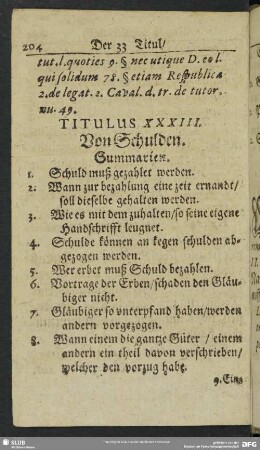 204 Der 33 Titul/
tut.l.quoties 9. § nec utique D. eo l.
qui solidum 78. § etiam Respublica
2. de legat. 2. Caval. d. tr. de tutor.
nu. 49.
TITULUS XXXIII.
Von Schulden.
Summarien.
1. Schuld muß gezahlet werden.
2. Wann zur bezahlung eine zeit ernandt/
soll dieselbe gehalten werden.
3. Wie es mit dem zuhalten/so seine eigene
Handschrifft leugnet.
4. Schulde können an kegen schulden ab-
gezogen werden.
5. Wer erbet muß Schuld bezahlen.
6. Vortrage der Erben/schaden den Gläu-
biger nicht.
7. Gläubiger so vnterpfand haben/werden
andern vorgezogen.
8. Wann einem die gantze Güter / einem
andern ein theil davon verschrieben/
welcher den vorzug habe.
9. Eins
SLUB
DFG